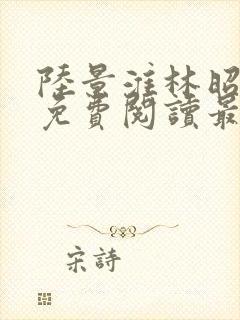 陸景淮林昭
免費閱讀最
宋詩